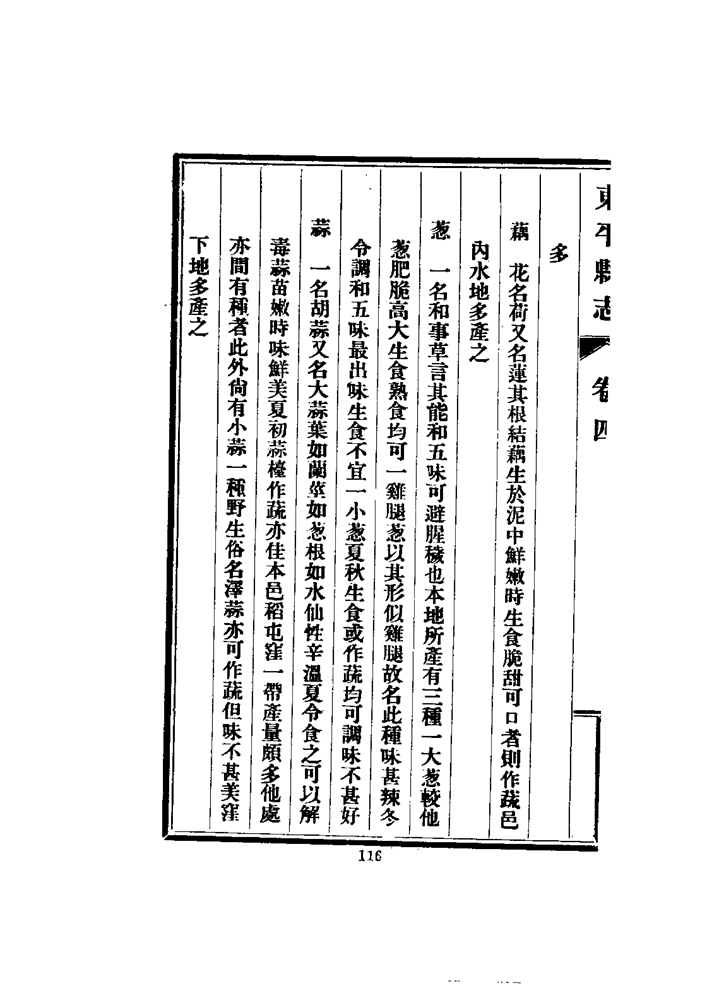 東平縣志 卷四
多
藕 花名荷又名蓮其根結藕生於泥中鮮嫩時生食脆甜可口者則作蔬邑
內水地多產之
葱 一名和事草言其能和五味可避腥穢也本地所產有三種一大葱較他
葱肥脆高大生食熟食均可一雞腿葱以其形似雞腿故名此種味甚辣冬
令調和五味最出味生食不宜一小葱夏秋生食或作蔬均可調味不甚好
蒜 一名胡蒜又名大蒜葉如蘭莖如葱根如水仙性辛溫夏令食之可以解
毒蒜苗嫩時味鮮美夏初蒜檯作蔬亦佳本邑稻屯窪一帶產量頗多他處
亦間有種者此外尙有小蒜一種野生俗名澤蒜亦可作蔬但味不甚美窪
下地多產之
116